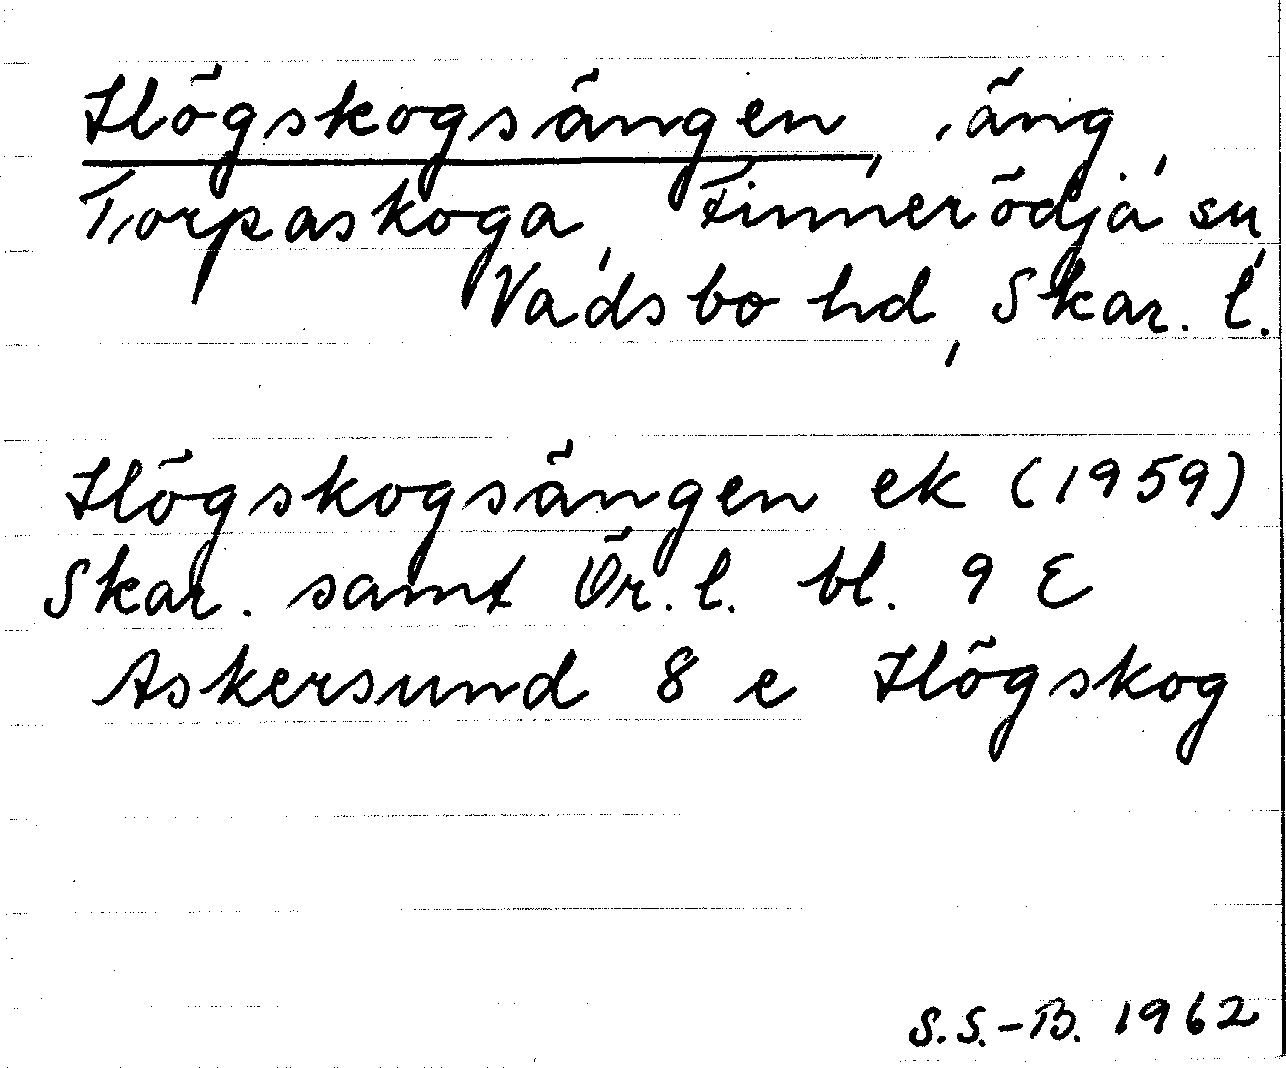 Högskogsängen, äng,
Torpaskoga, Finnerödja sn,
Vadsbo hd, Skar. l.
Högskogsängen ek (1959)
Skar. samt Ör. l. bl. 9 E
Askersund 8 e Högskog
S.S.-B. 1962